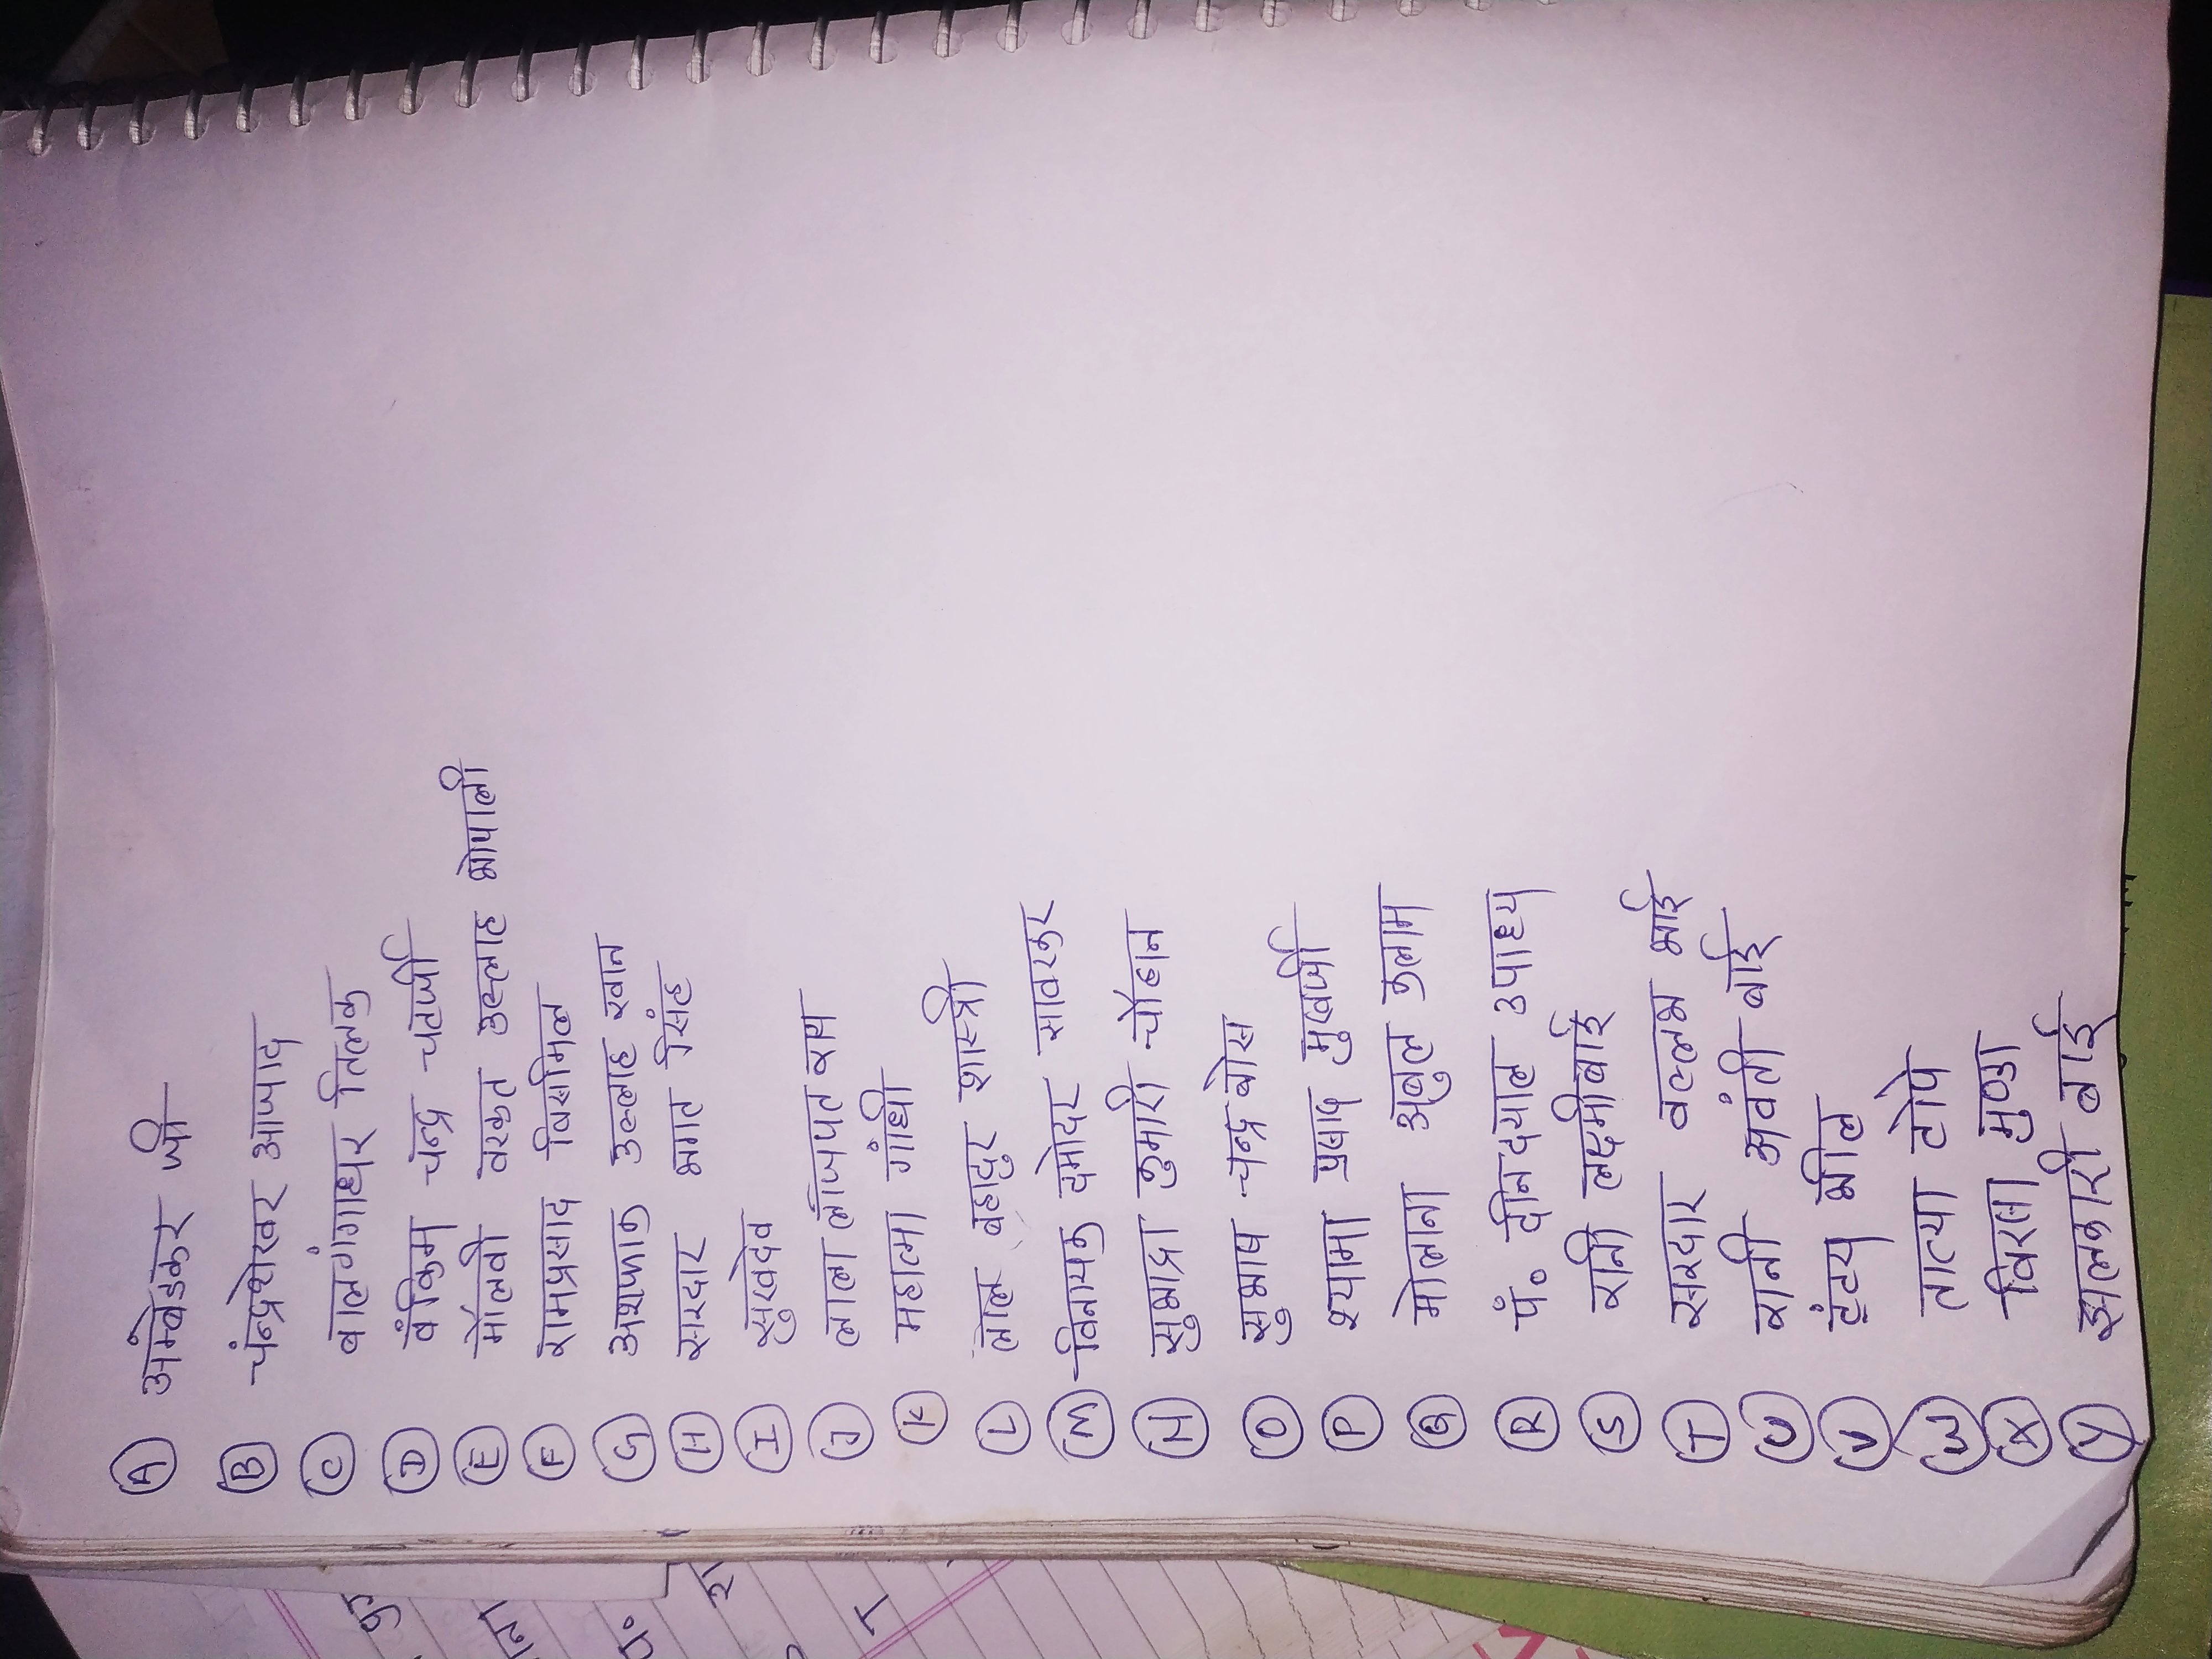 Ⓐ अम्बेडकर जी
Ⓑ चंन्द्रशेखर आजाद
Ⓒ बालगंगाधर तिलक
Ⓓ बंकिम चन्द्र चटर्जी
Ⓔ मौलवी बरकत उल्लाह भोपाली
Ⓕ रामप्रसाद बिसमिल
Ⓖ अशफाक उल्लाह खान
Ⓗ सरदार भगत सिंह
Ⓘ सुखदेव
Ⓙ लाला लाजपत राय
Ⓚ महात्मा गांधी
Ⓛ लाल बहादुर शास्त्री
Ⓜ विनायक दमोदर सावरकर
Ⓝ सुभाद्रा कुमारी चौहान
Ⓞ सुभाष चन्द्र बोस
Ⓟ श्यामा प्रसाद मुखर्जी
Ⓠ मोलाना अबुल कलाम
Ⓡ पं॰ दीनदयाल उपाध्य
Ⓢ रानी लक्ष्मीबाई
Ⓣ सरदार वल्लभ भाई
Ⓤ रानी अवंती बाई
Ⓥ टंटय भील
Ⓦ तात्या टोपे
Ⓧ विरसा मुण्डा
Ⓨ झलकारी बाई